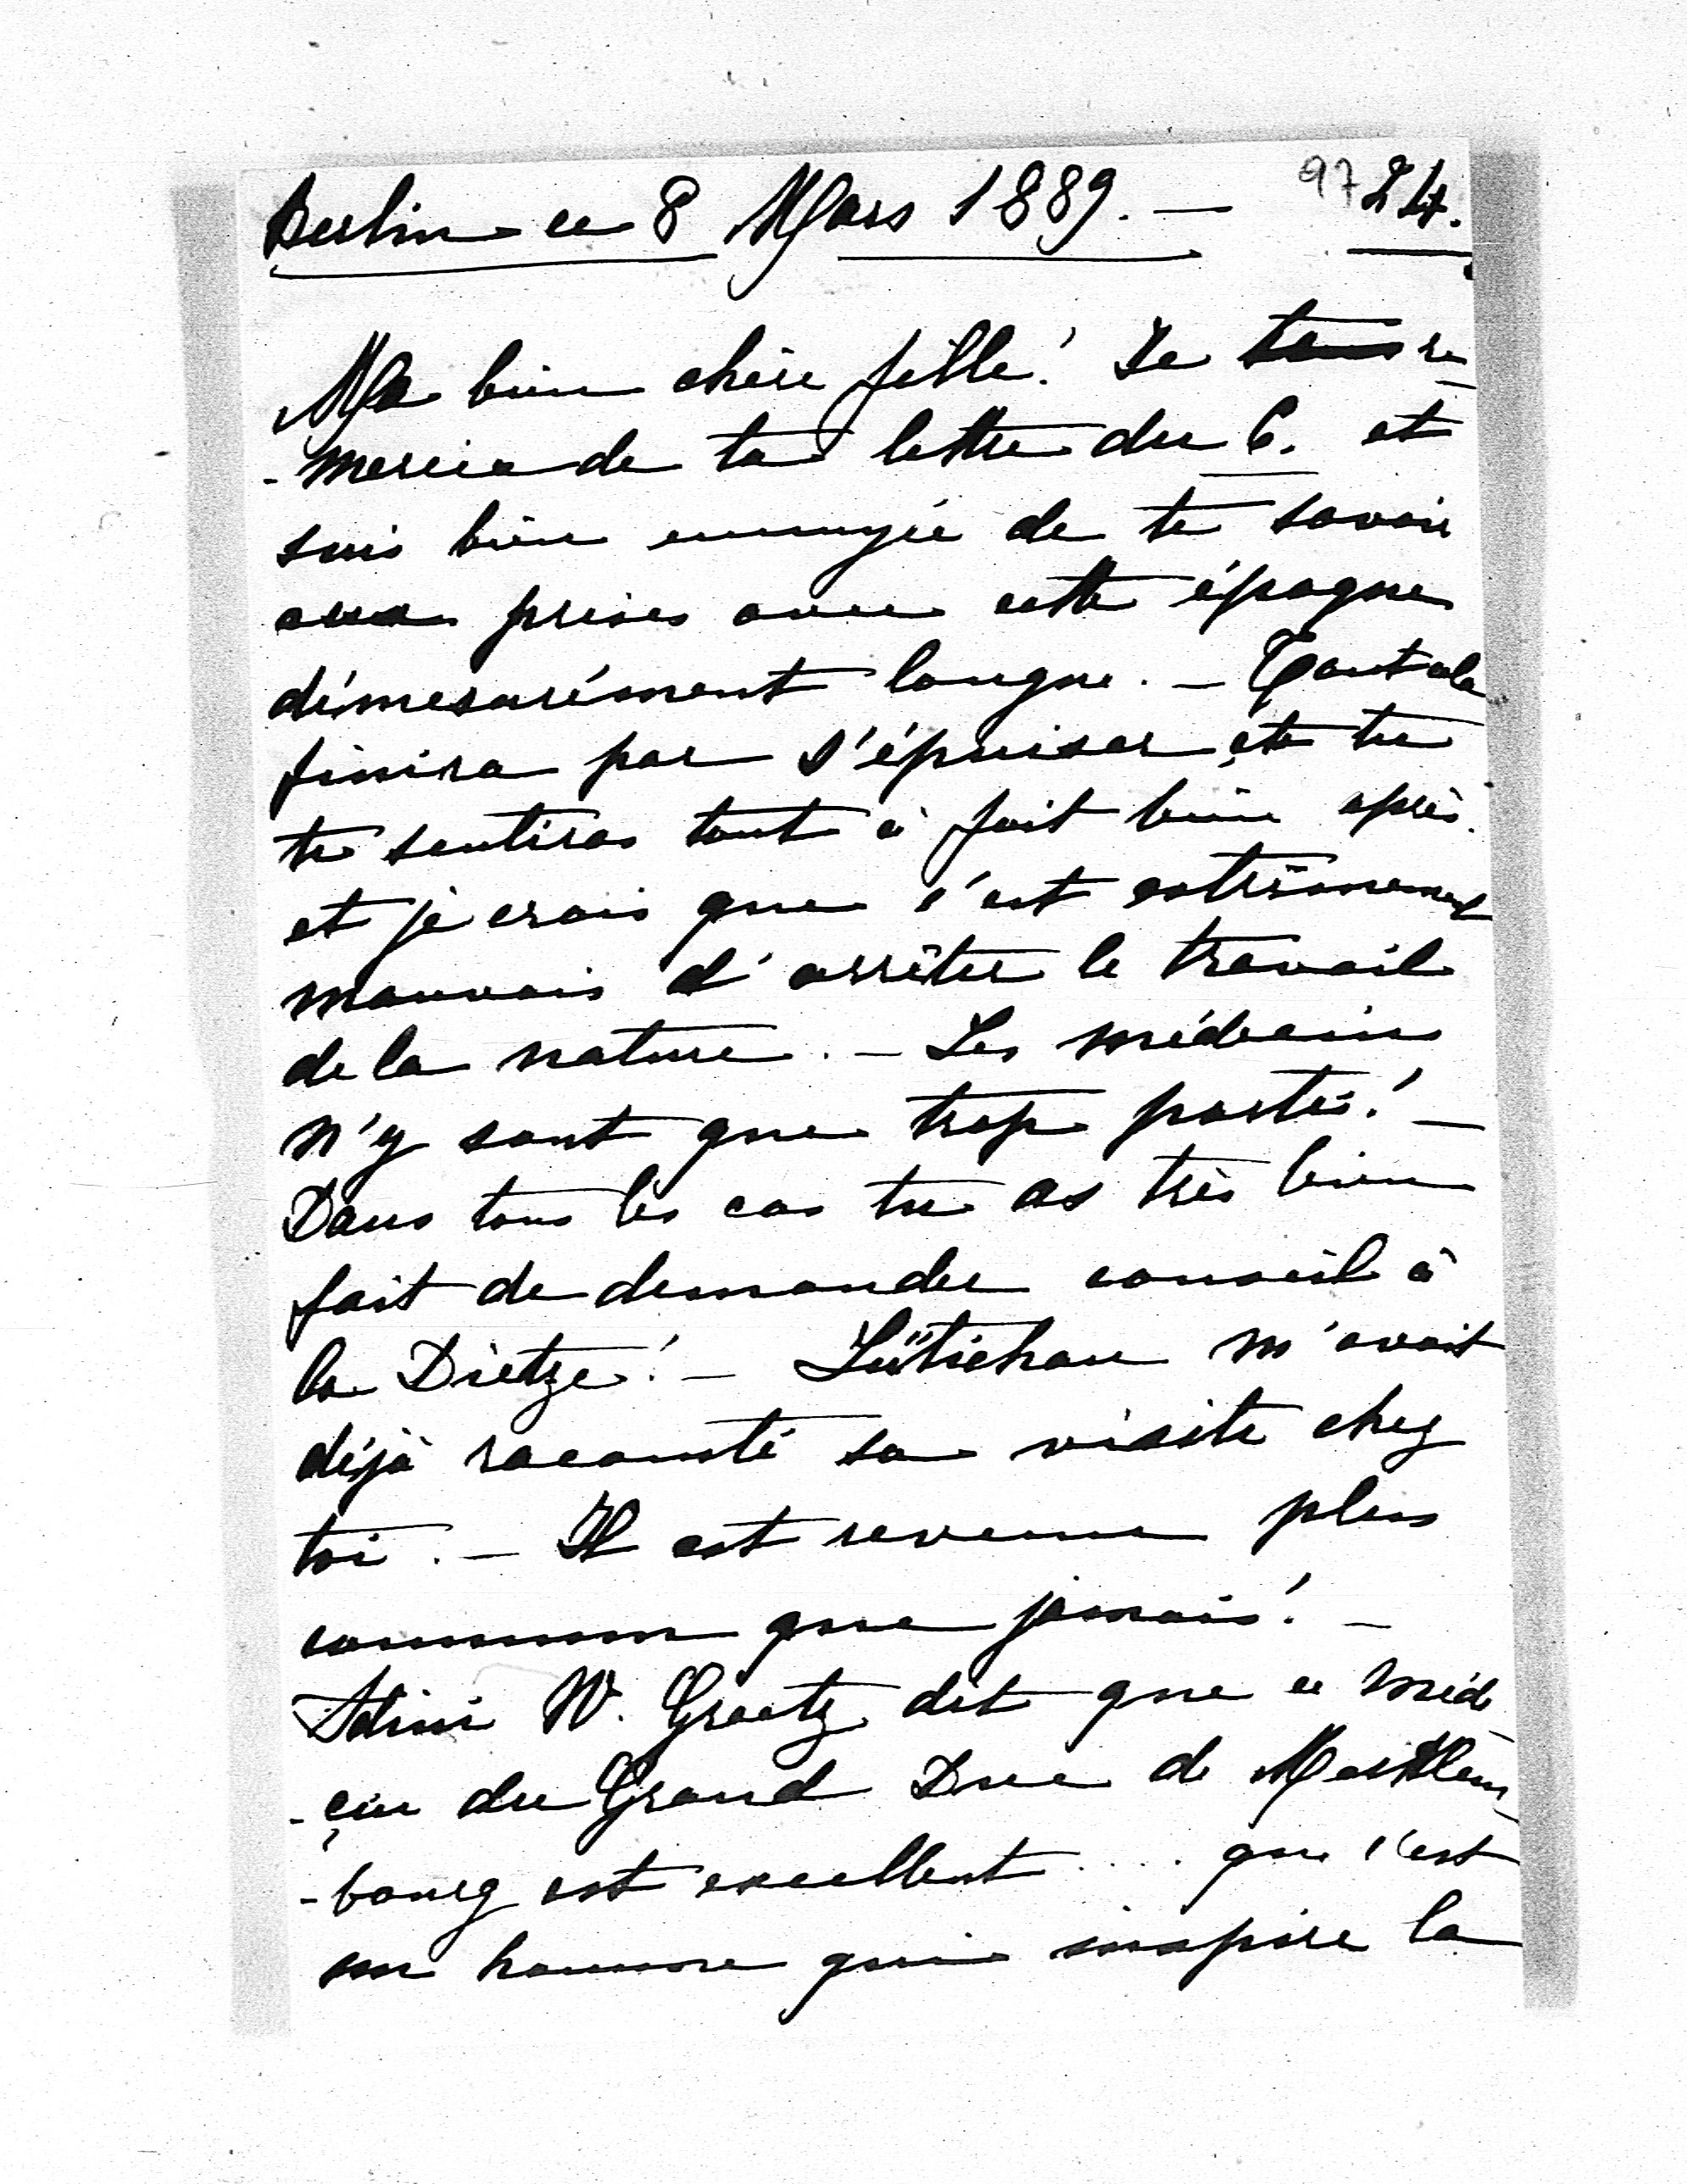 Berlin ce 8 Mars 1889. — 97 24.
Ma bien chère fille! Je re
-mercie de ta lettre du 6. et
suis bien ennuyée de te savoir
aux prises avec cette époque
démesurément longue. — Tout cela
finira par s'épuiser, et tu
te sentiras tout à fait bien après.
et je crois que c'est extrêmement
mauvais d'arrêter le travail
de la nature. — Les médecins
n'y sont que trop portés! —
Dans tous les cas tu as très bien
fait de demander conseil à
la Dietze! — Lüttichau m'avait
déjà raconté sa visite chez
toi. — Il est revenu plus
commun que jamais! —
Adini W. Graetz dit que ce méde
-çin du Grand Duc de Mecklem
-bourg est excellent .... que c'est
un homme qui inspire la